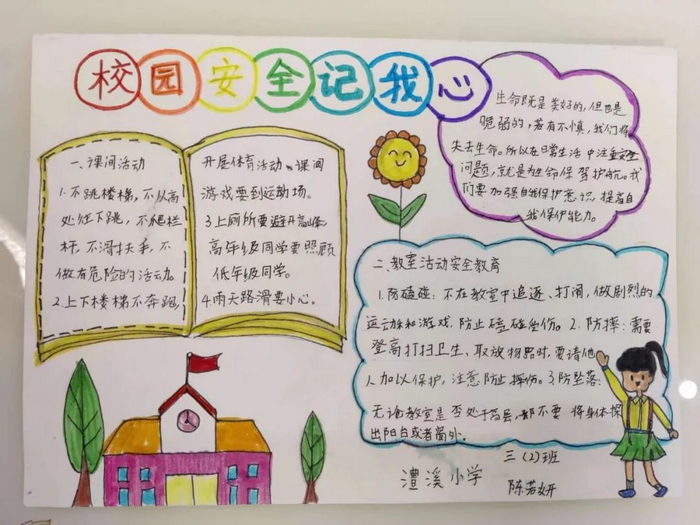 校园安全记我心
一、课间活动
1.不跳楼梯,不从高
处往下跳,不爬栏
杆,不滑扶手,不
做有危险的活动。
2.上下楼梯不奔跑,
开展体育活动、课间
游戏要到运动场。
3.上厕所要避开高峰,
高年级同学要照顾
低年级同学。
4.雨天路滑要小心。
生命既是美好的,但也是
脆弱的,若有不慎,我们将
失去生命。所以在日常生活中注意安全
问题,就是为生命保驾护航。我
们要加强自我保护意识,提高自
我保护能力。
二、教室活动安全教育
1.防磕碰:不在教室中追逐、打闹,做剧烈的
运动和游戏,防止磕碰受伤。2.防摔:需要
登高打扫卫生、取放物品时,要请他
人加以保护,注意防止摔伤。3.防坠落:
无论教室是否处于高层,都不要将身体探
出阳台或者窗外。
澧溪小学
三(2)班
陈若妍